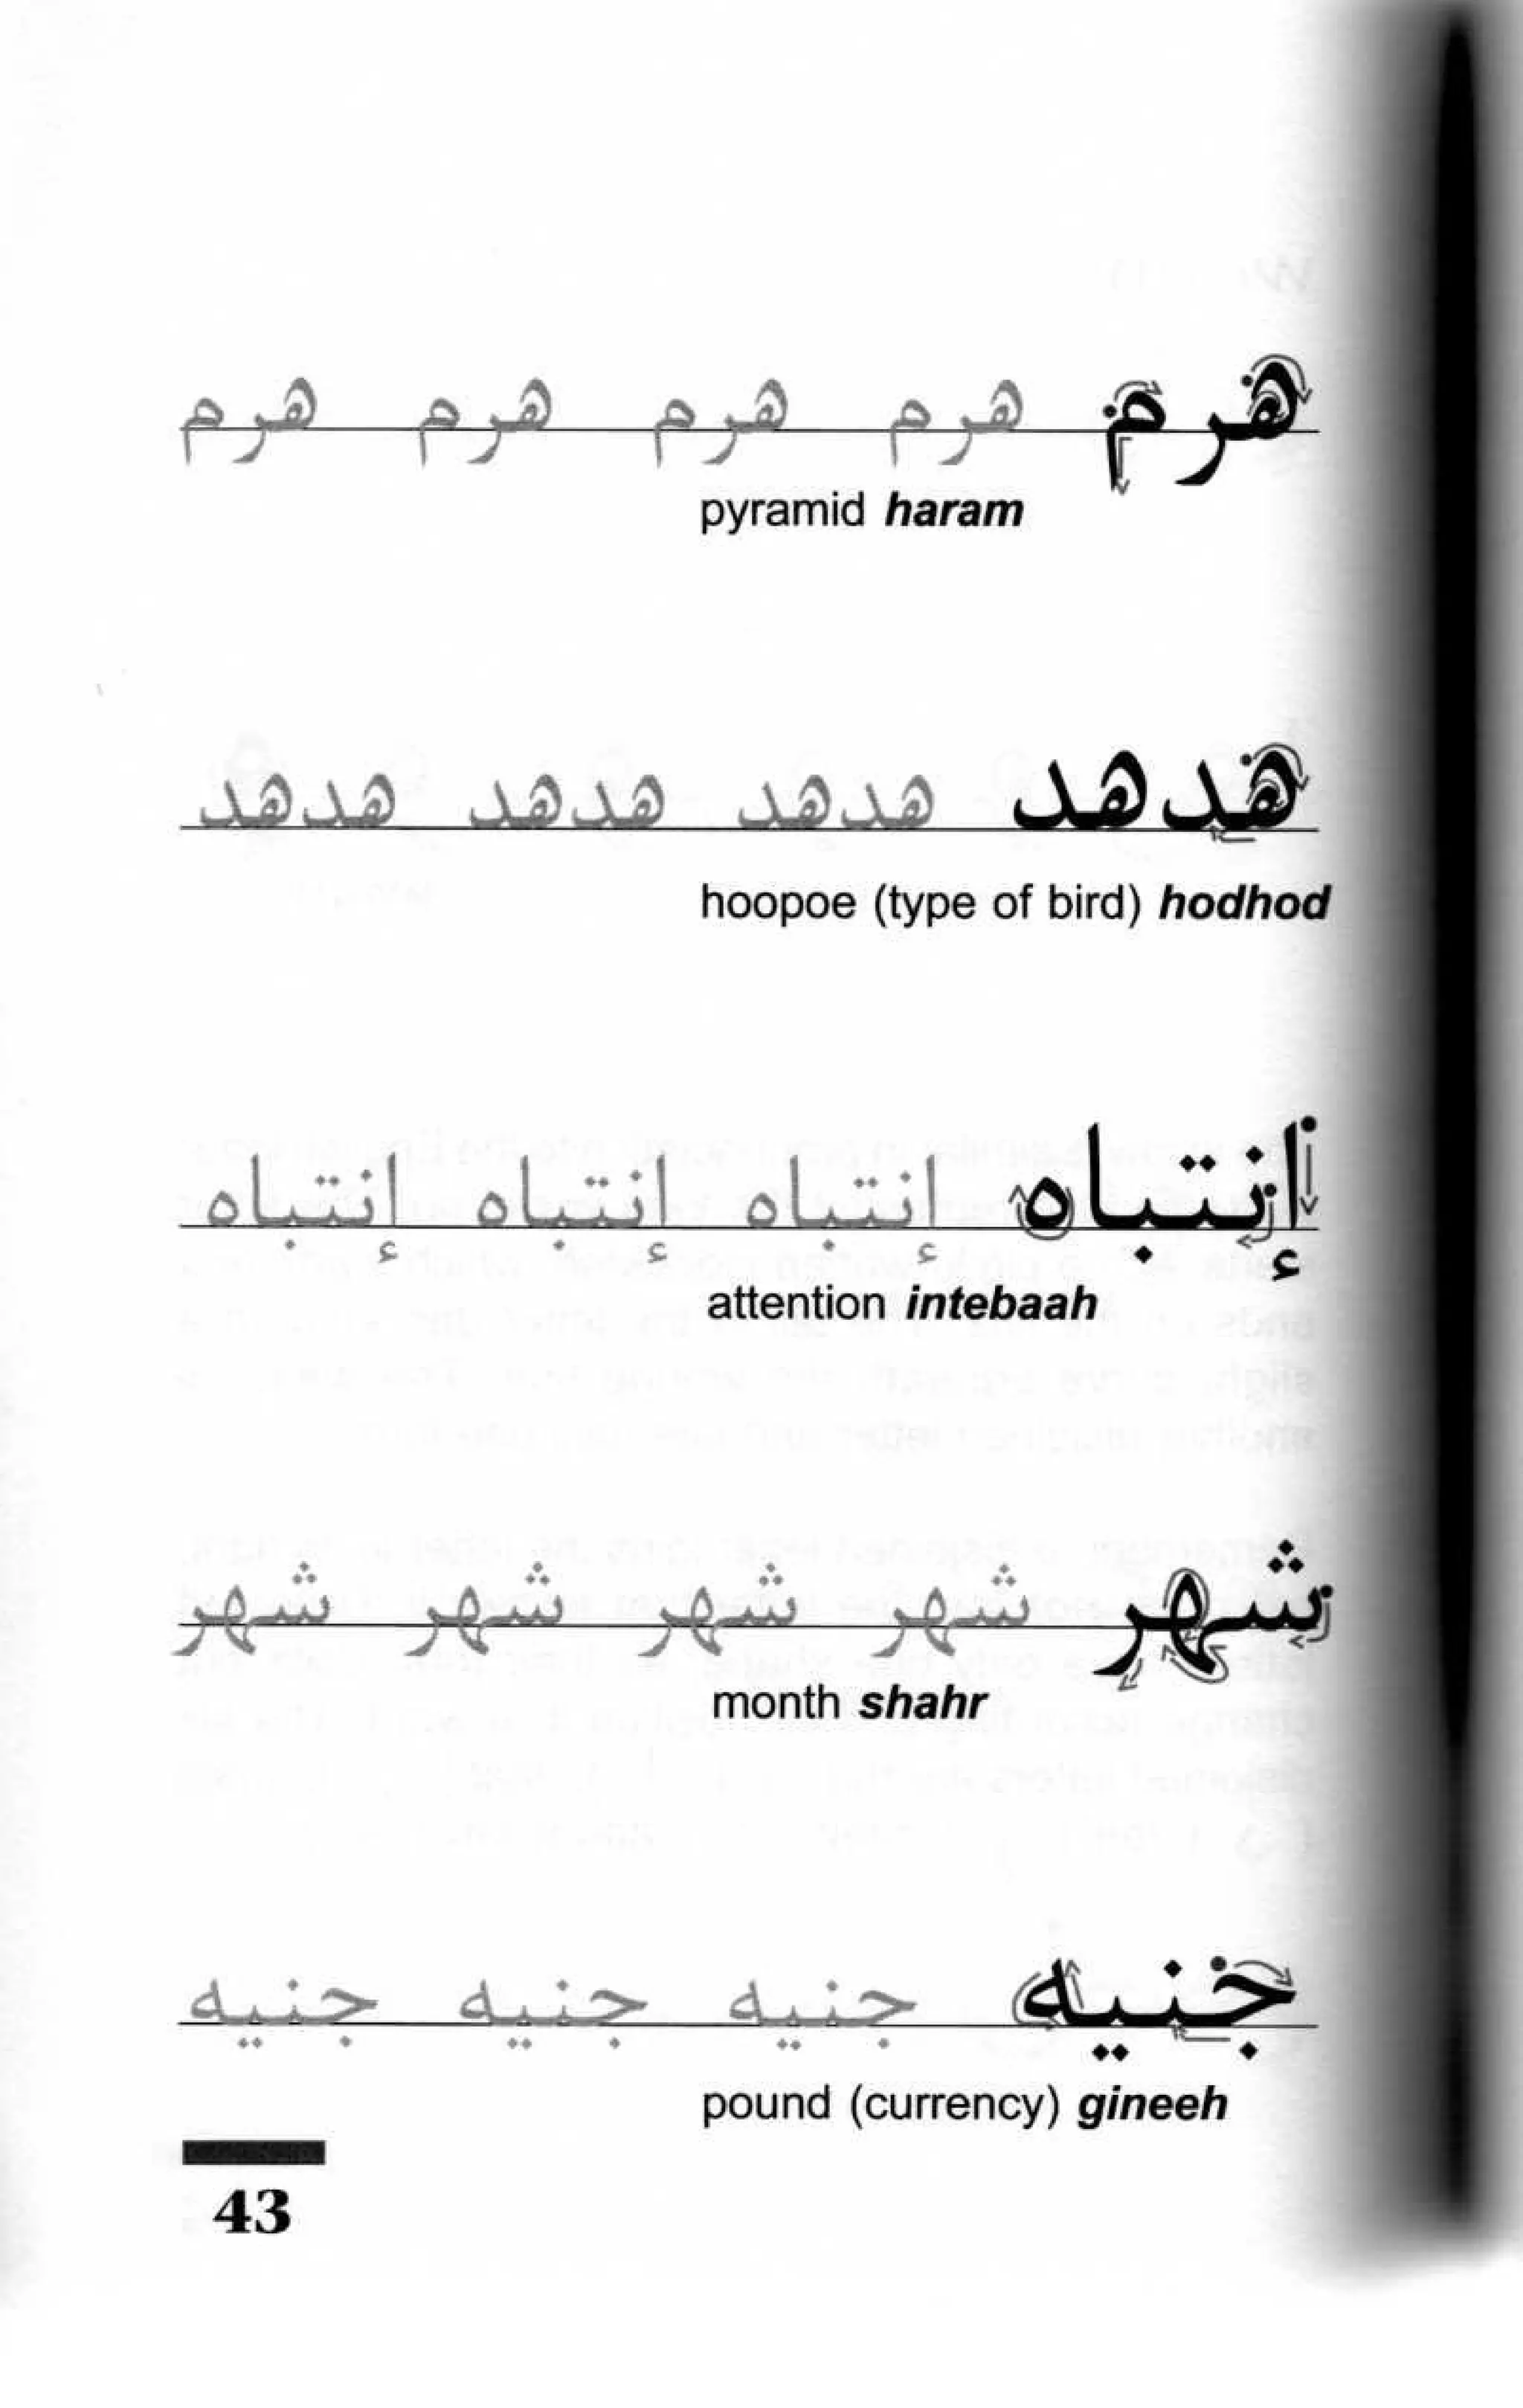 هرم هرم هرم هرم هرم
pyramid haram
هدهد هدهد هدهد هدهد
hoopoe (type of bird) hodhod
إنتباه إنتباه إنتباه إنتباه
attention intebaah
شهر شهر شهر شهر شهر
month shahr
جنيه جنيه جنيه جنيه
pound (currency) gineeh
43